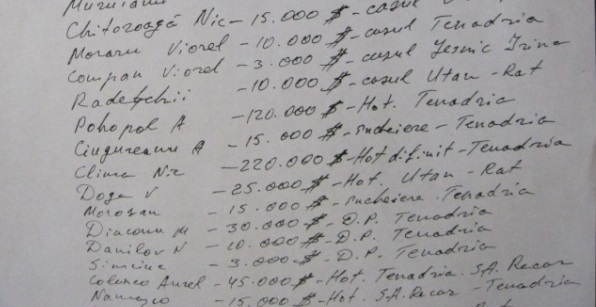 Chitoroagă Nic – 15.000 $ – casul
Moraru Viorel – 10.000 $ – casul Tenadria
Compan Viorel – 3.000 $ – casul Yesnic Irina
Radetchii – 10.000 $ – casul Utan - Rat
Pohopol A – 120.000 $ – Hot. Tenadria
Ciugureanu A – 15.000 $ – incheiere – Tenadria
Clima Nic – 220.000 $ – Hot difinit – Tenadria
Doga V – 25.000 $ – Hot. Utan – Rat
Morosan – 15.000 $ – incheiere Tenadria
Diaconu M – 30.000 $ – D.P. Tenadria
Danilov N – 10.000 $ – D.P. Tenadria
– 3.000 $ – D.P. Tenadria
Aurel – 45.000 $ – Hot. Tenadria. S.A. Recar
– 15.000 $ – Hot. S.A. Recar – Tenadria